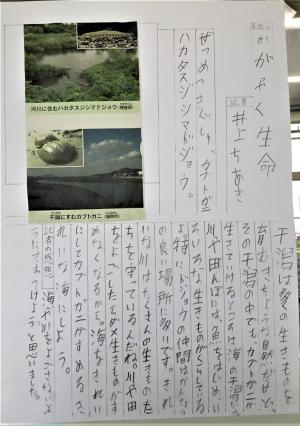 見出し
かがやく生命
記者
井上ちあき
ぜつめつきぐしゅ、カブトガニ
ハカタスジシマドジョウ。
河川に住むハカタスジシマドジョウ(福岡市)
干潟にすむカブトガニ(福岡市)
干潟は多の生きものを
育むきちょうな自然だけど、
その干潟の中でも、カブトガニが
生きていけるところは海の干潟で
川や田んぼは、魚をはじめいろ
いろな生きものがくらしている
よ。特にドジョウの仲間はかんきょう
の良い場所に多いです。きれ
いな川はたくさんの生きものた
ちを守っているんだね。川や田
をよごしたらダメ生きものがす
めなくなるから。海をきれい
にしてカブトガニがすめるき
れいな海にしよう。
記者の感想
海や川をよごさないよ
うに気をつけようと思いました。